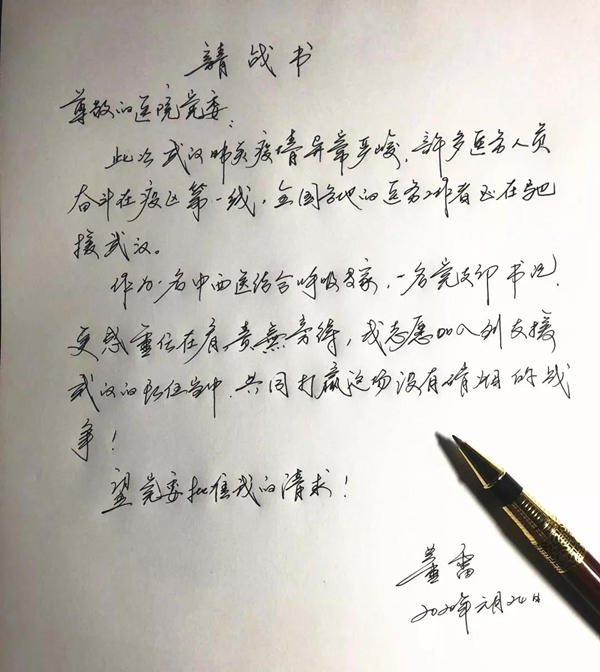 請战书
尊敬的医院党委:
此次武汉肺炎疫情异常严峻,許多医务人员
奋斗在疫区第一线,全国各地的医务工作者正在驰
援武汉。
作为一名中西医结合呼吸专家,一名党支部书记,
更感重任在肩,责无旁待,我志愿加入到支援
武汉的队伍当中,共同打赢这场没有硝烟的战
争!
望党委批准我的请求!
董雷
2020年元月26日